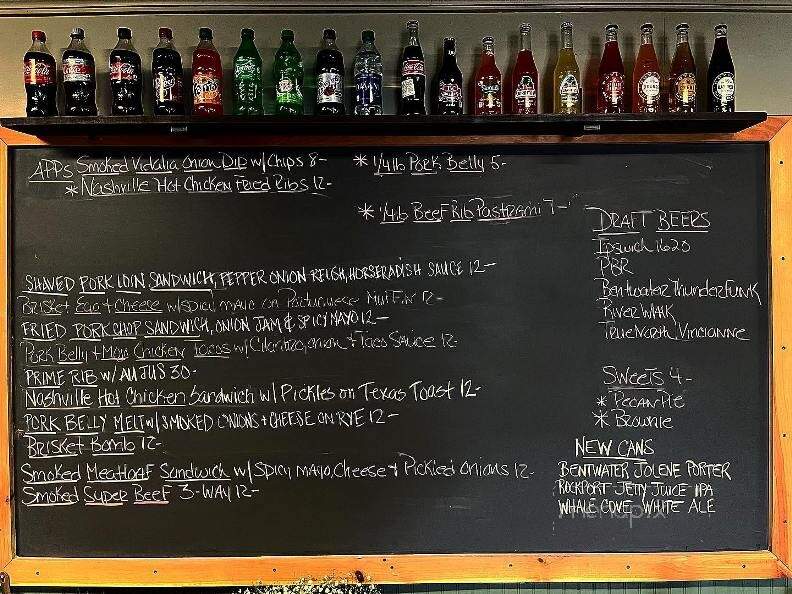 APPs Smoked Vidalia Onion Dip w/ Chips 8-
* Nashville Hot Chicken Fried Ribs 12-
* 1/4 lb Pork Belly 5-
* 1/4 lb Beef Rib Pastrami 7-
SHAVED PORK LOIN SANDWICH, PEPPER ONION RELISH, HORSERADISH SAUCE 12-
Brisket Egg + Cheese w/ spicy mayo on Portuguese Muffin 12-
FRIED PORK CHOP SANDWICH, ONION JAM & SPICY MAYO 12-
Pork Belly + Mojo Chicken Tacos w/ Cilantro, onion + Taco Sauce 12-
PRIME RIB W/ AU JUS 30-
Nashville Hot Chicken Sandwich w/ Pickles on Texas Toast 12-
PORK BELLY MELT W/ SMOKED ONIONS + CHEESE ON RYE 12-
Brisket Bomb 12-
Smoked Meatloaf Sandwich w/ Spicy Mayo, Cheese + Pickled Onions 12-
Smoked Super Beef 3-WAY 12-
DRAFT BEERS
Ipswich 1620
PBR
Bentwater Thunder Funk
River Walk
True North Vincianne
SWEETS 4-
* Pecan Pie
* Brownie
NEW CANS
BENTWATER JOLENE PORTER
ROCKPORT JETTY JUICE IPA
WHALE COVE WHITE ALE
menupix